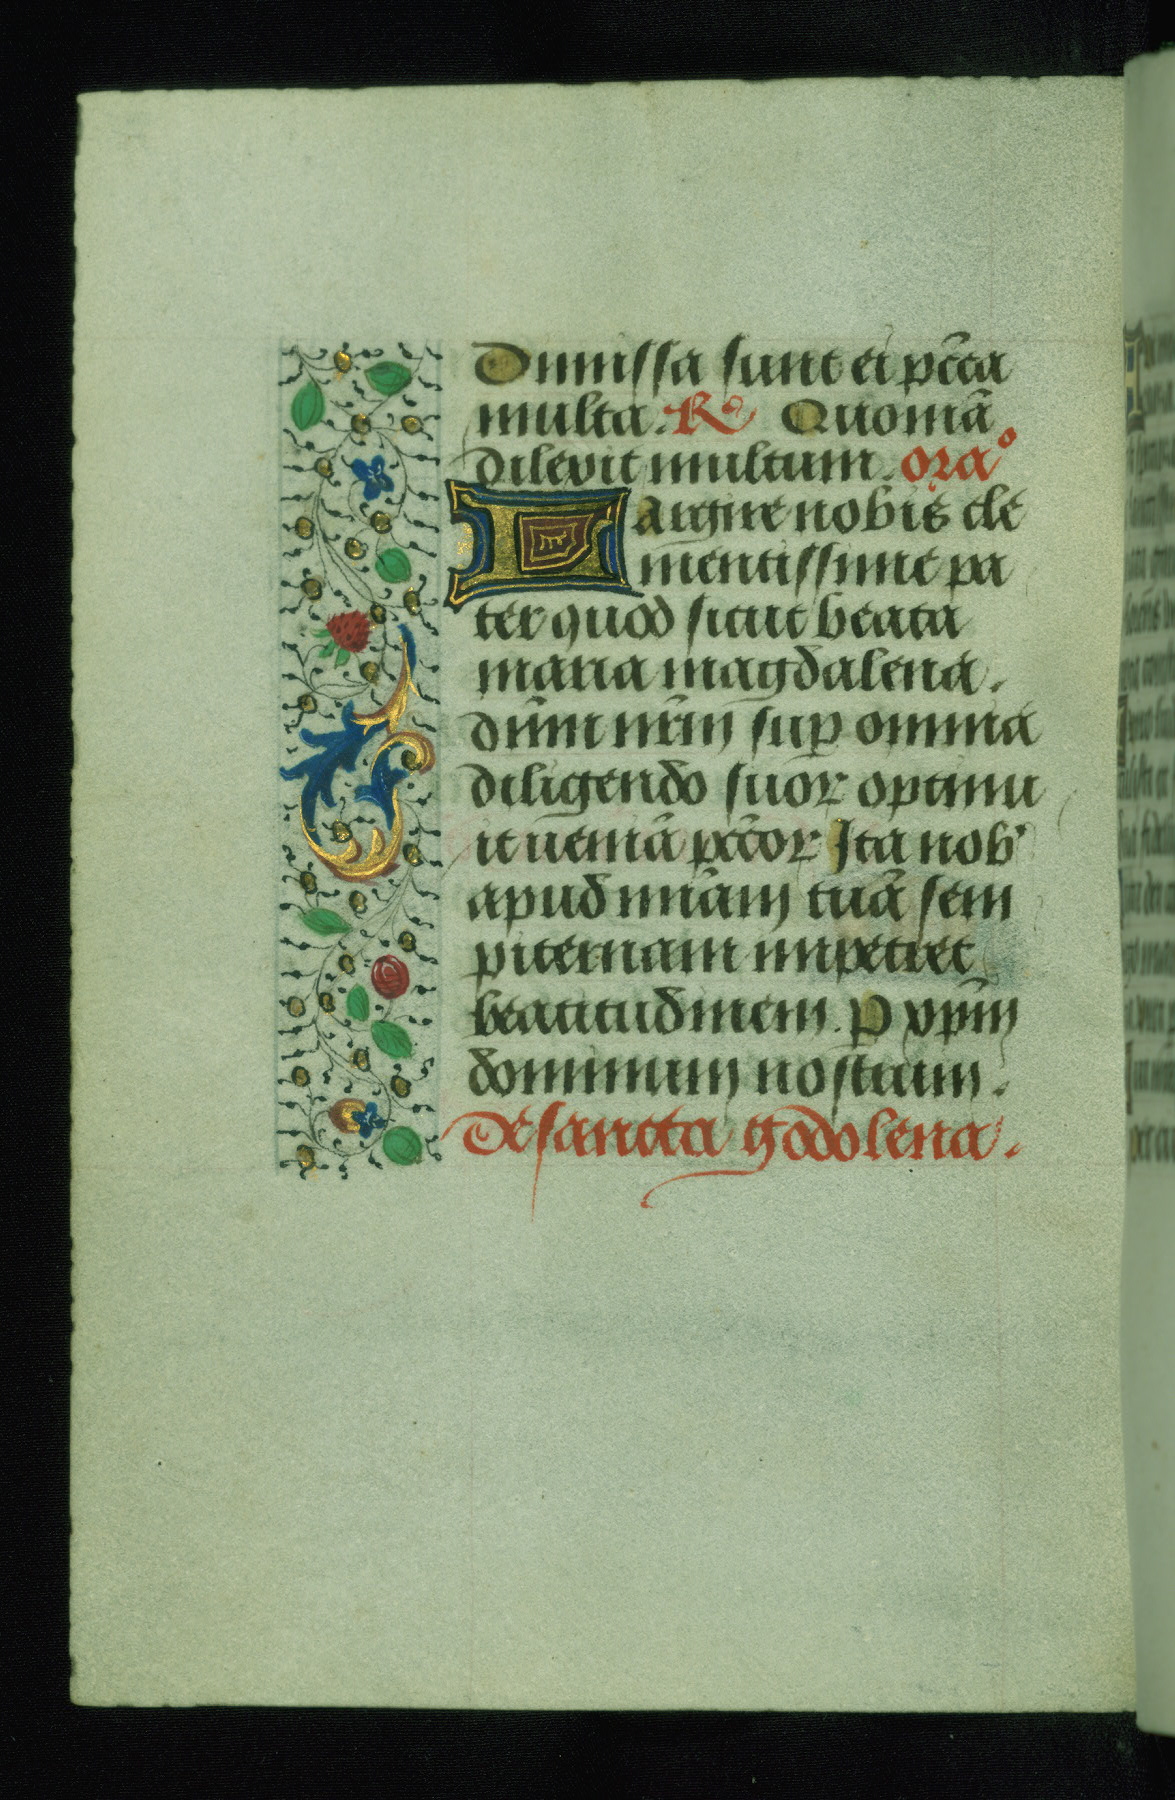 Dimissa sunt ei pc̄ca
multa. R̃ Quoniā
dilexit multum. orao
Largire nobis cle
mentissime pa
ter quod sicut beata
maria magdalena.
dn̄m nr̄m sup̱ omnia
diligendo suoꝝ optinu
it ueniā pc̄coꝝ Ita nob᾿
apud mīam tuā sem
piternam impetret
beatitudinem. P xp̄m
dominum nostrum.
De sancta godolena.